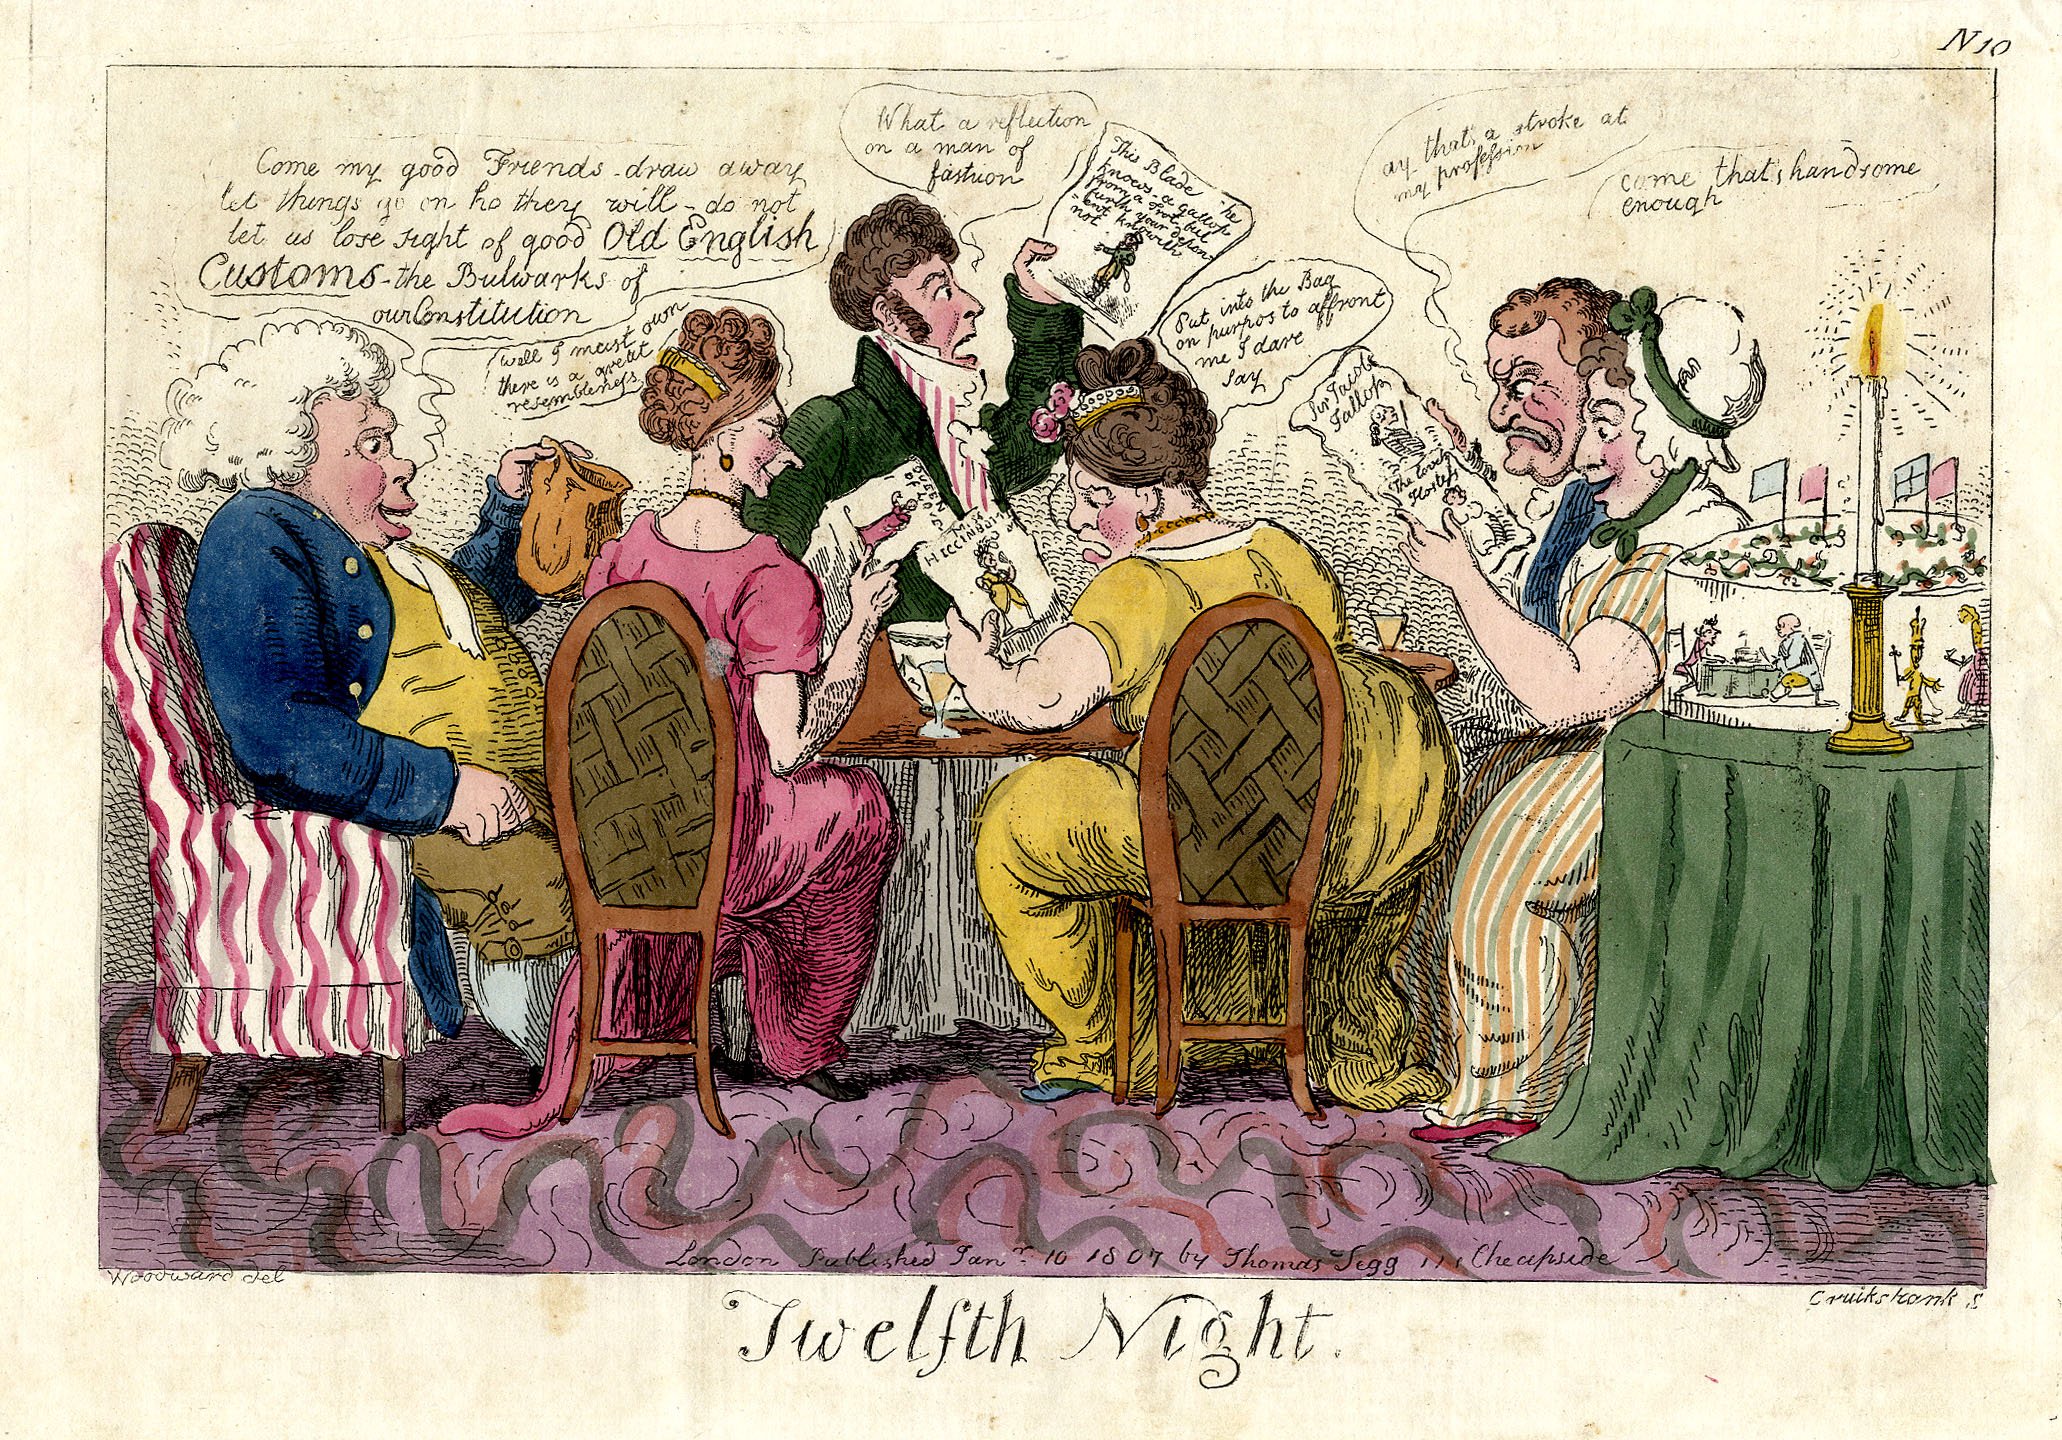 N 10
Come my good Friends - draw away
let things go on ho they will - do not
let us lose sight of good Old English
Customs - the Bulwarks of
our Constitution
well I must own
there is a great
resemblences
What a reflection
on a man of
fashion
This Blade
knows a gallop
from a trot, but he
furth your depon
=ent knoweth
not
Put into the Bag
on purpos to affront
me I dare
say
ay that's a stroke at
my profession
come that's handsome
enough
Sir Jacob
Jallop
The lovely
QUEEN
OF
HIGGINBOTTOM
London Published Jany. 10 1807 by Thomas Tegg 111 Cheapside
Woodward del
Cruikshank S
Twelfth Night.